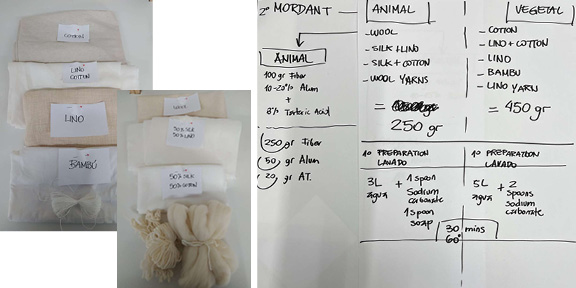 COTTON
LINO
COTTON
LINO
BAMBÚ
WOOL
50% SILK
50% LINO
50% SILK
50% COTTON
2º MORDANT
ANIMAL
100 gr Fiber
10-20% Alum
+
8% Tartaric Acid
250 gr Fiber
50 gr Alum
20 gr AT.
ANIMAL
- WOOL
- SILK + LINO
- SILK + COTTON
- WOOL YARNS
=
250 gr
VEGETAL
- COTTON
- LINO + COTTON
- LINO
- BAMBU
- LINO YARN
= 450 gr
1º PREPARATION
LAVADO
3L
agua
+ 1 spoon
Sodium
carbonate
1 spoon
soap
1º PREPARATION
LAVADO
5L
agua
+ 2
Spoons
Sodium
carbonate
30 mins
60°